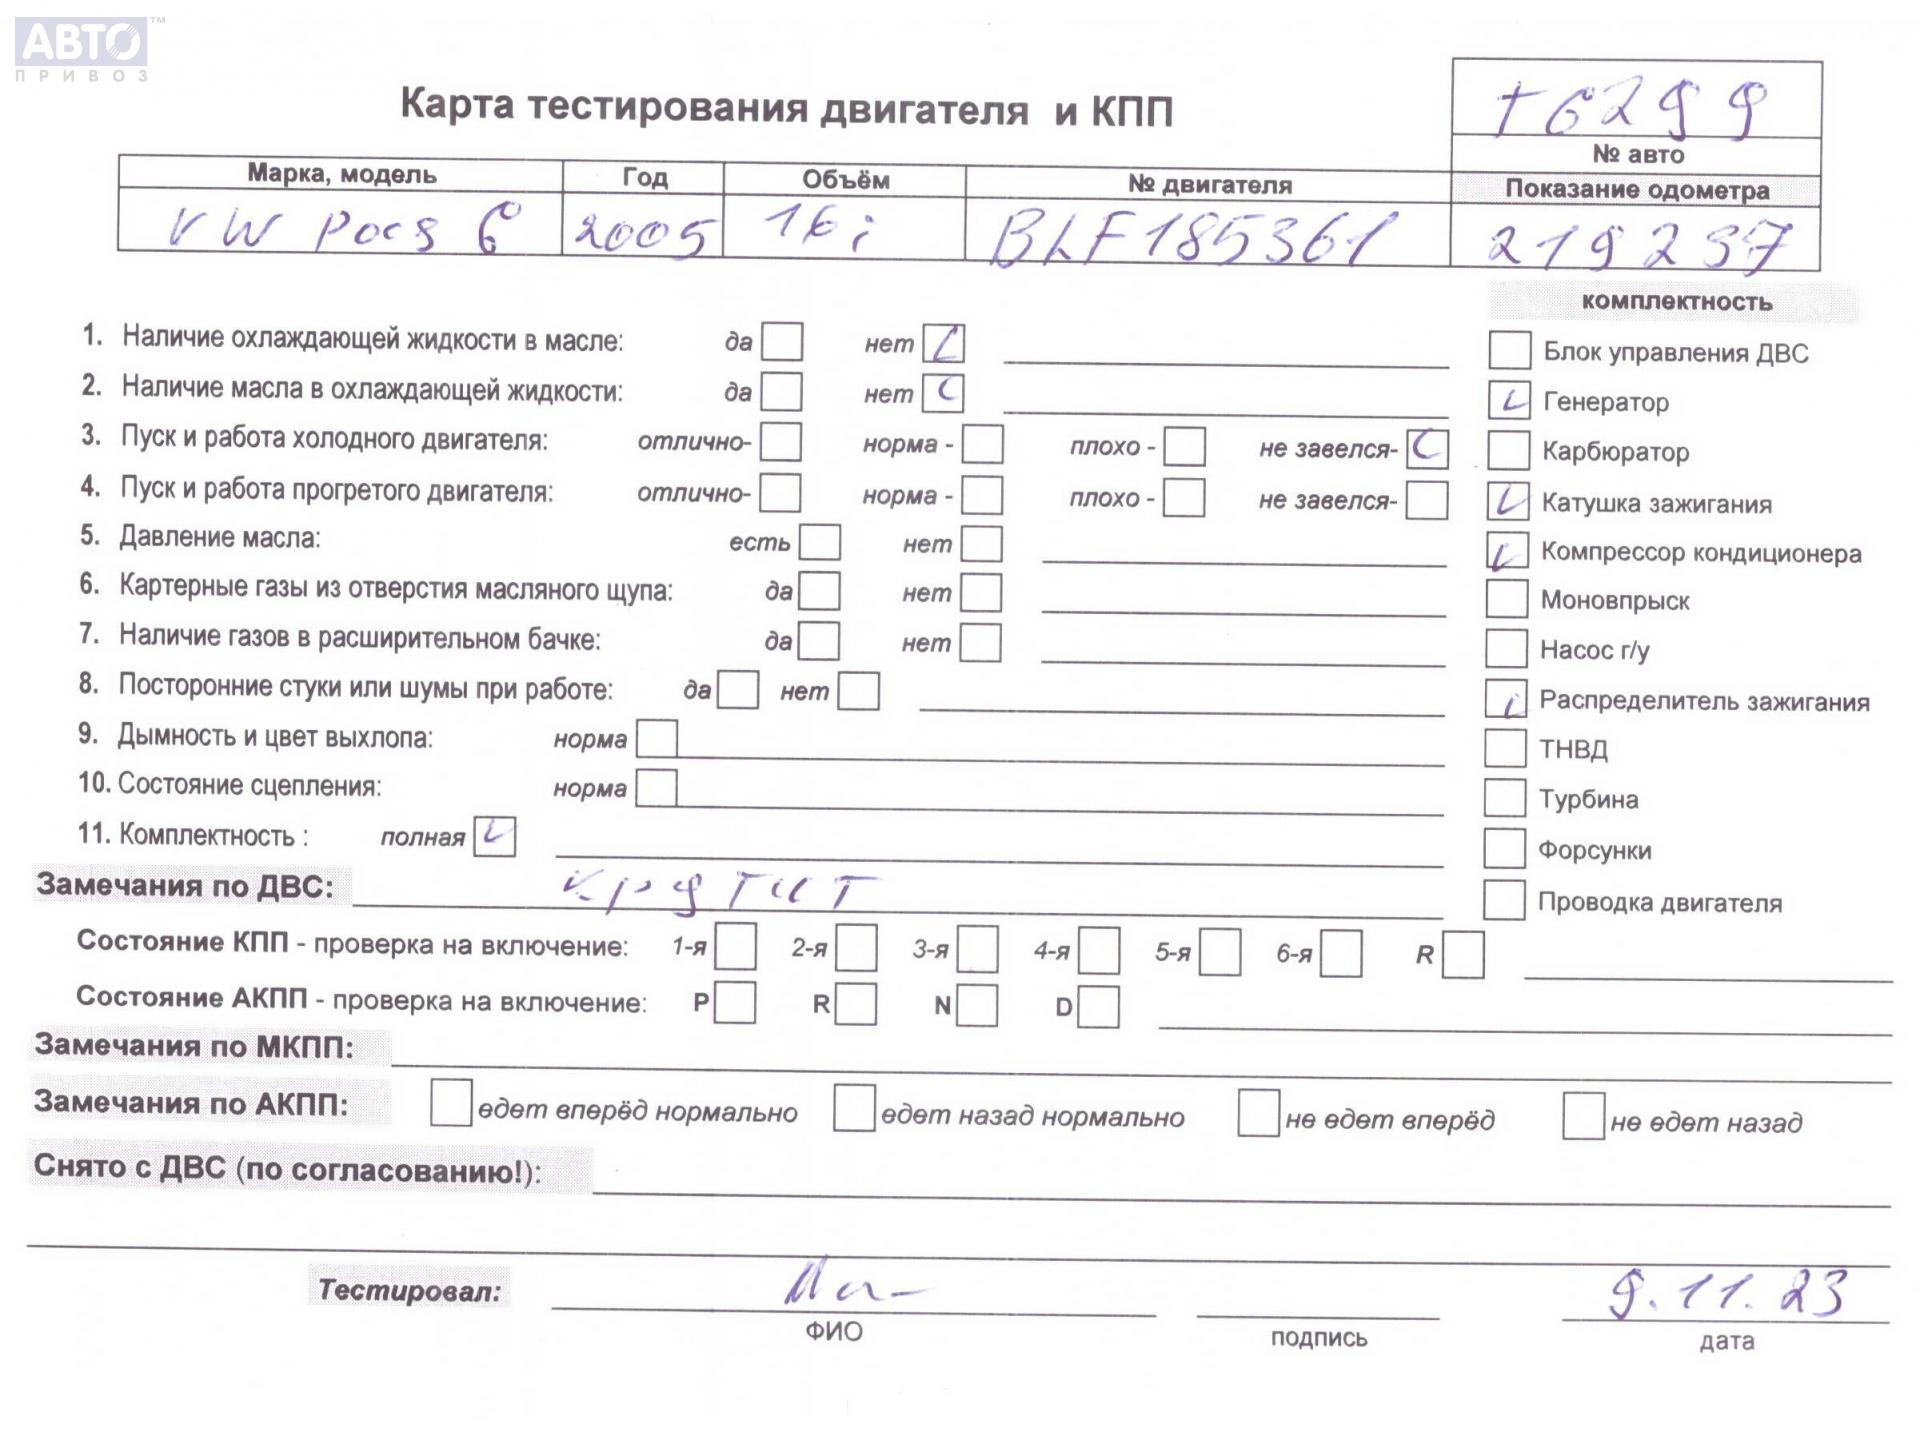 АВТО™
ПРИВОЗ
Карта тестирования двигателя и КПП
т6299
№ авто
Марка, модель Год Объём № двигателя Показание одометра
VW Pocs 6 2005 16i BLF185361 219237
комплектность
1. Наличие охлаждающей жидкости в масле: да нет Блок управления ДВС
2. Наличие масла в охлаждающей жидкости: да нет Генератор
3. Пуск и работа холодного двигателя: отлично- норма - плохо - не завелся- Карбюратор
4. Пуск и работа прогретого двигателя: отлично- норма - плохо - не завелся- Катушка зажигания
5. Давление масла: есть нет Компрессор кондиционера
6. Картерные газы из отверстия масляного щупа: да нет Моновпрыск
7. Наличие газов в расширительном бачке: да нет Насос г/у
8. Посторонние стуки или шумы при работе: да нет Распределитель зажигания
9. Дымность и цвет выхлопа: норма ТНВД
10. Состояние сцепления: норма Турбина
11. Комплектность : полная Форсунки
Замечания по ДВС: Проводка двигателя
Состояние КПП - проверка на включение: 1-я 2-я 3-я 4-я 5-я 6-я R
Состояние АКПП - проверка на включение: P R N D
Замечания по МКПП:
Замечания по АКПП: едет вперёд нормально едет назад нормально не едет вперёд не едет назад
Снято с ДВС (по согласованию!):
Тестировал: 9.11.23
ФИО подпись дата